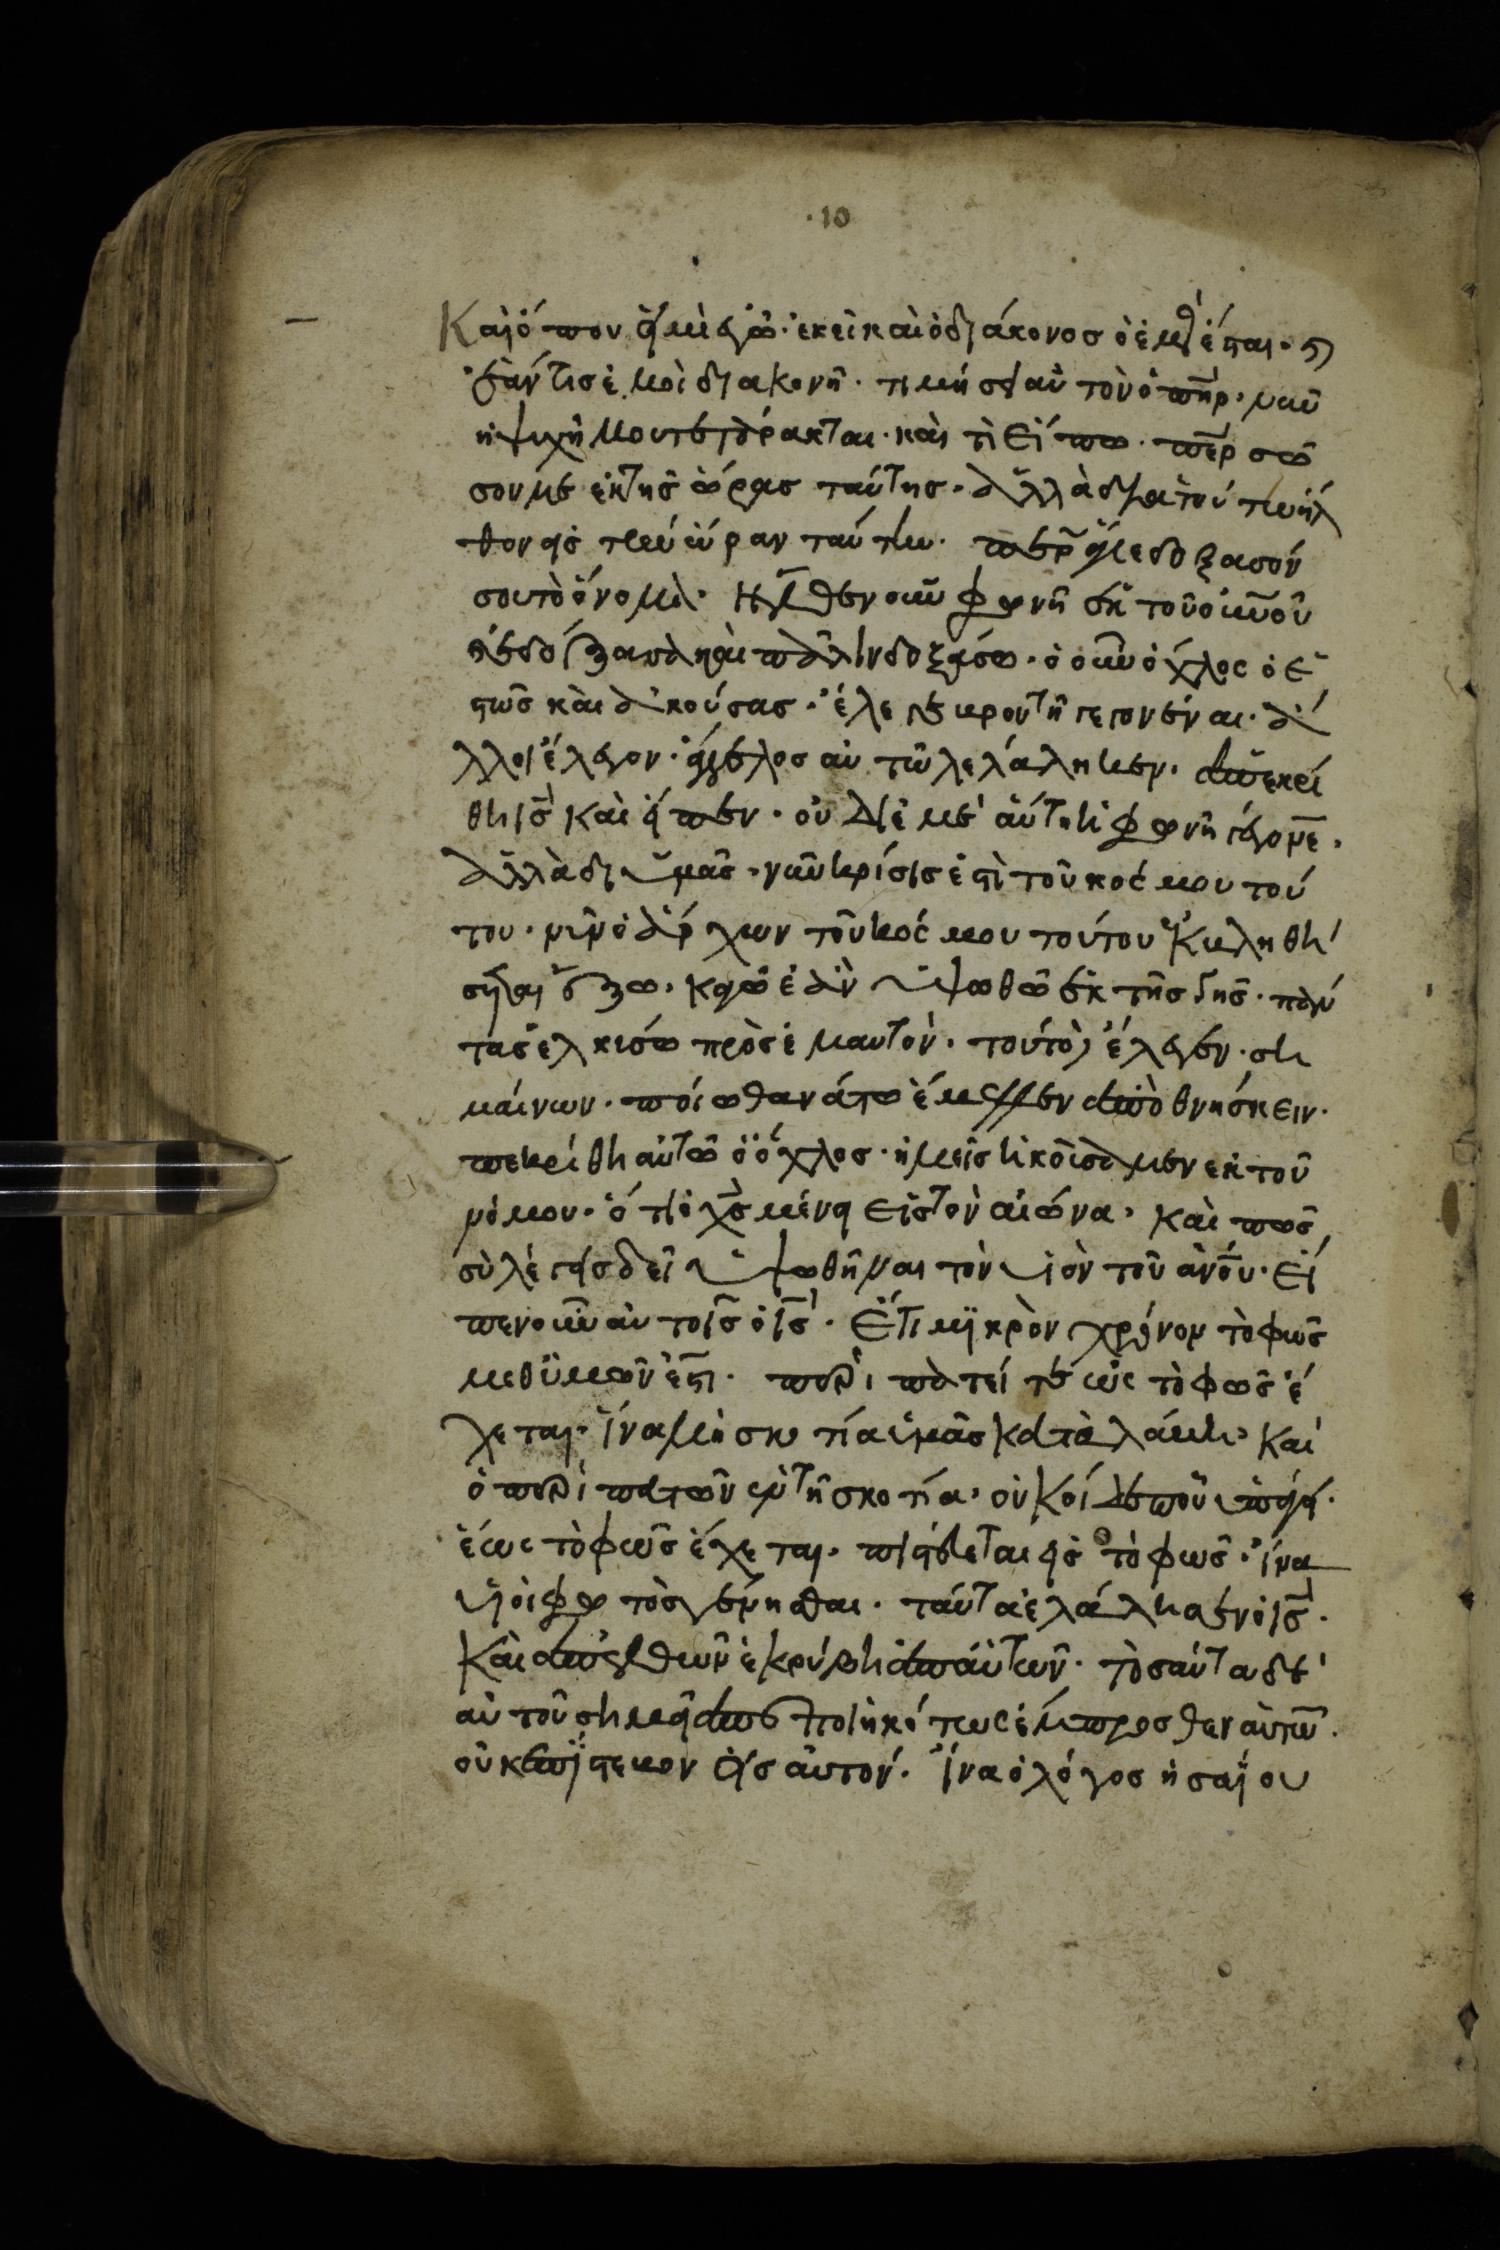 ·10
Καὶ ὅπου εἰμὶ ἐγὼ· ἐκεῖ καὶ ὁ διάκονος ὁ ἐμὸς ἔσται· καὶ
ἐάν τις ἐμοὶ διακονῆ· τιμήσει αὐτὸν ὁ πη̅ρ· νῦν
ἡ ψυχή μου τετάρακται· καὶ τί εἴπω· πε̅ρ σῶ
σον με ἐκ τῆς ὥρας ταύτης· ἀλλὰ διὰ τοῦτο ἦλ
θον εἰς τὴν ὥραν ταύτην· πε̅ρ δόξασόν
σου τὸ ὄνομα· Ἦλθεν οὖν φωνὴ ἐκ τοῦ οὐνοῦ
καὶ ἐδόξασα καὶ πάλιν δοξάσω· ὁ οὖν ὄχλος ὁ ἑ
στὼς καὶ ἀκούσας· ἔλεγε βροντῆ γεγονέναι· ἄ
λλοι ἔλεγον· ἄγγελος αὐτῶ λελάληκεν· ἀπεκρί
θη ις̅ καὶ εἶπεν· οὐ δι ἐμὲ αὕτη ἡ φωνὴ γέγονε·
ἀλλὰ δι ὑμᾶς· νῦν κρίσις ἐστὶ τοῦ κόσμου τού
του· νῦν ὁ ἄρχων τοῦ κόσμου τούτου ἐκβληθή
σεται ἔξω· κἀγὼ ἐὰν ὑψωθῶ ἐκ τῆς γῆς· πάν
τας ἑλκύσω πρὸς ἐμαυτὸν· τοῦτο δὲ ἔλεγεν· ση
μαίνων· ποίω θανάτω ἔμελλεν ἀποθνήσκειν·
πεκρίθη αὐτῶ ὁ ὄχλος· ἡμεῖς ἠκούσαμεν ἐκ τοῦ
νόμου· ὅτι ὁ χς̅ μένει εἰς τὸν αἰῶνα· καὶ πῶς
σὺ λέγεις δεῖ ὑψωθῆναι τὸν υἱὸν τοῦ ἀνου̅· Εἶ
πεν οὖν αὐτοῖς ὁ ις̅· Ἔτι μικρὸν χρόνον τὸ φῶς
μεθ ὑμῶν ἐστι· περιπατεῖτε ἕως τὸ φῶς ἔ
χεται· ἵνα μὴ σκοτία ὑμᾶς καταλάβη· Καὶ
ὁ περιπατῶν ἐν τῆ σκοτία· οὐκ οἶδε ποῦ ὑπάγει·
ἕως τὸ φῶς ἔχεται· πιστεύεται εἰς τὸ φῶς· ἵνα
υἱοὶ φωτὸς γένησθαι· ταῦτα ἐλάλησεν ὁ ις̅·
Καὶ ἀπελθὼν ἐκρύβη ἀπ αὐτῶν· τοσαῦτα δὲ
αὐτοῦ σημεῖα πεποιηκότως ἔμπροσθεν αὐτῶν·
οὐκ ἐπίστευον εἰς αὐτόν· ἵνα ὁ λόγος ἡσαΐου